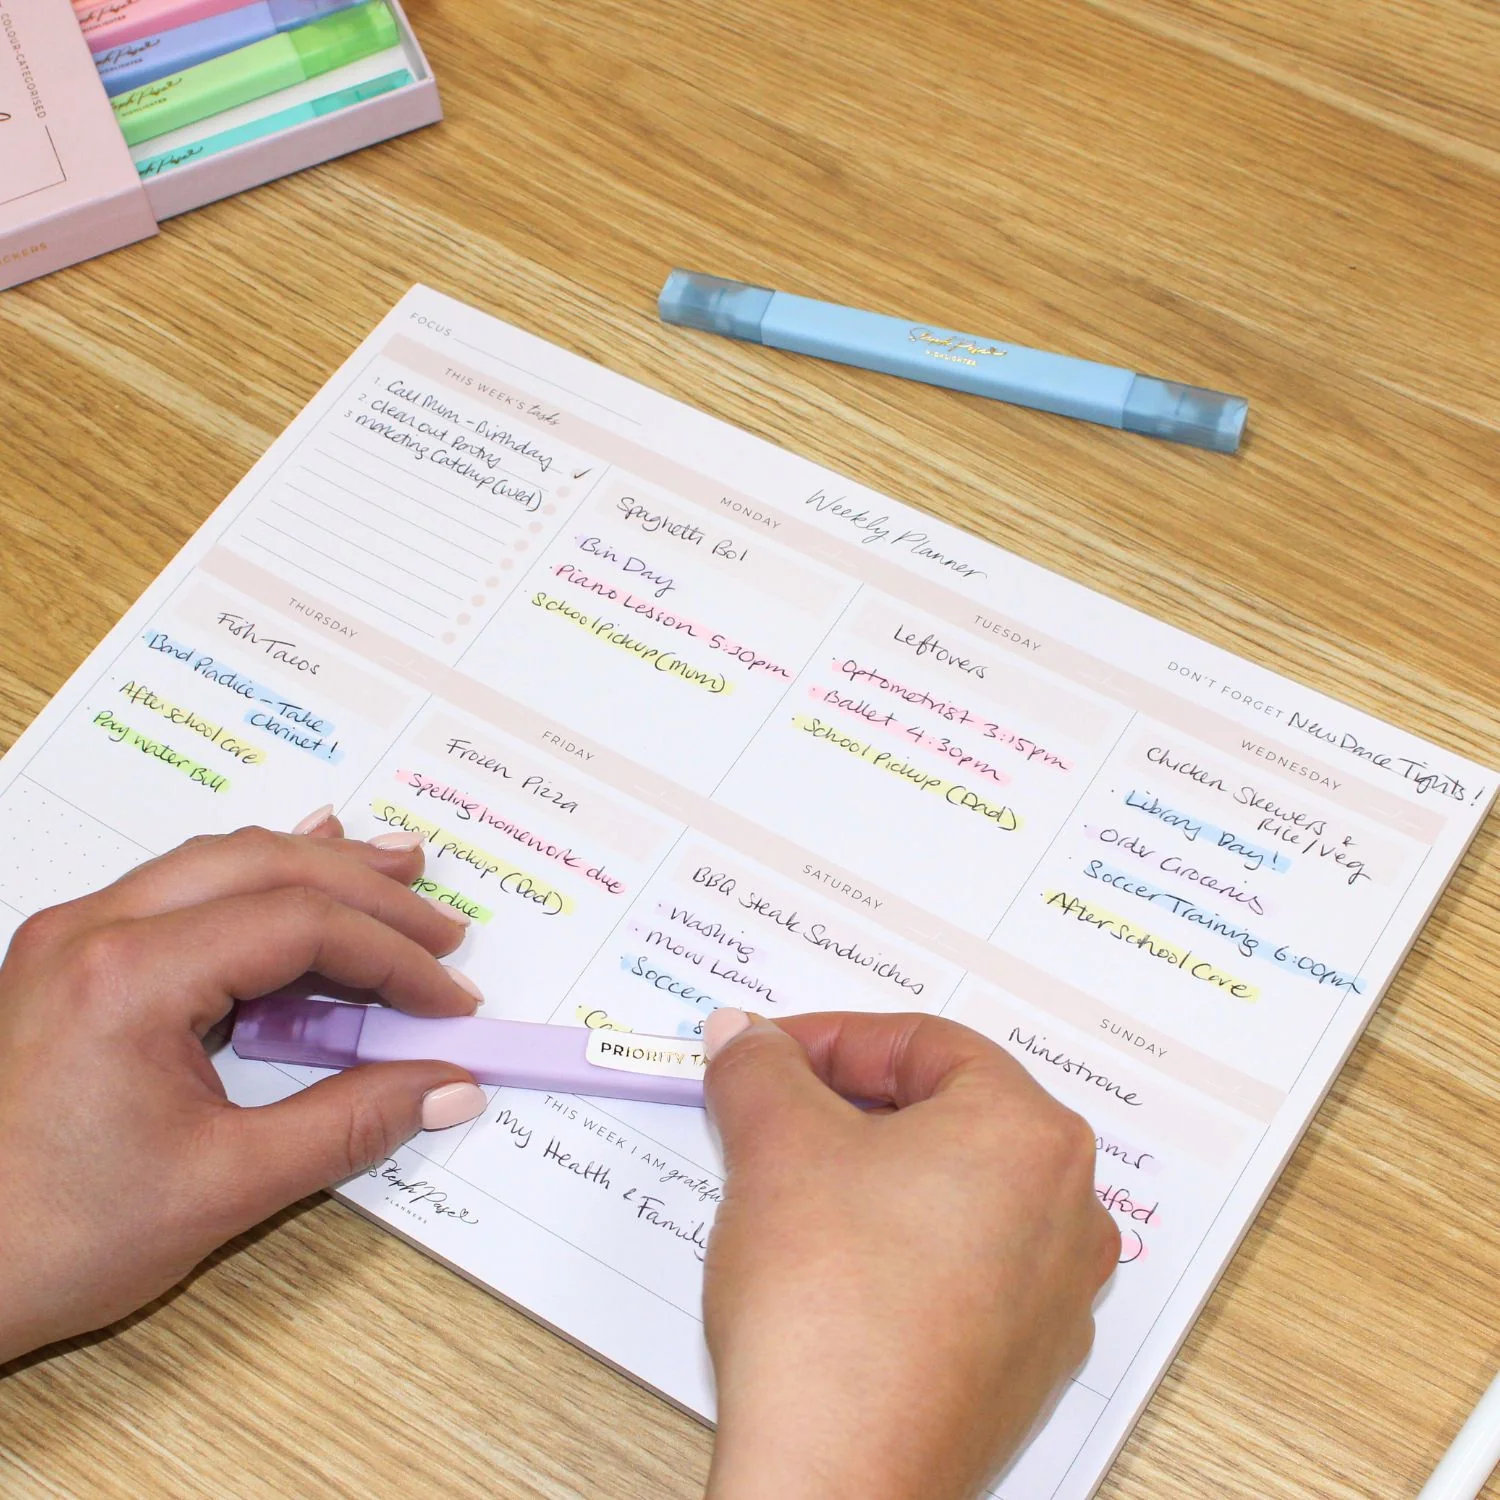 COLOUR-CATEGORISED
HIGHLIGHTER
HIGHLIGHTER
Steph Pase
HIGHLIGHTER
FOCUS
THIS WEEK'S tasks
1. Call Mum - Birthday ✓
2 Clean out Pantry
3 Marketing Catchup (Wed)
Weekly Planner
DON'T FORGET New Dance Tights!
MONDAY
Spaghetti Bol
· Bin Day
· Piano Lesson 5:30pm
· School Pickup (Mum)
TUESDAY
Leftovers
· Optometrist 3:15pm
· Ballet 4:30pm
· School Pickup (Dad)
WEDNESDAY
Chicken Skewers &
Rice/Veg
· Library Day!
· Order Groceries
· Soccer Training 6:00pm
· After School Care
THURSDAY
Fish Tacos
· Band Practice - Take
Clarinet!
· After school care
· Pay Water Bill
FRIDAY
Frozen Pizza
· Spelling homework due
· School pickup (Dad)
due
SATURDAY
BBQ Steak Sandwiches
· Washing
· Mow Lawn
· Soccer -
SUNDAY
Minestrone
PRIORITY TA
THIS WEEK I AM grateful
My Health & Family
Steph Pase
PLANNERS